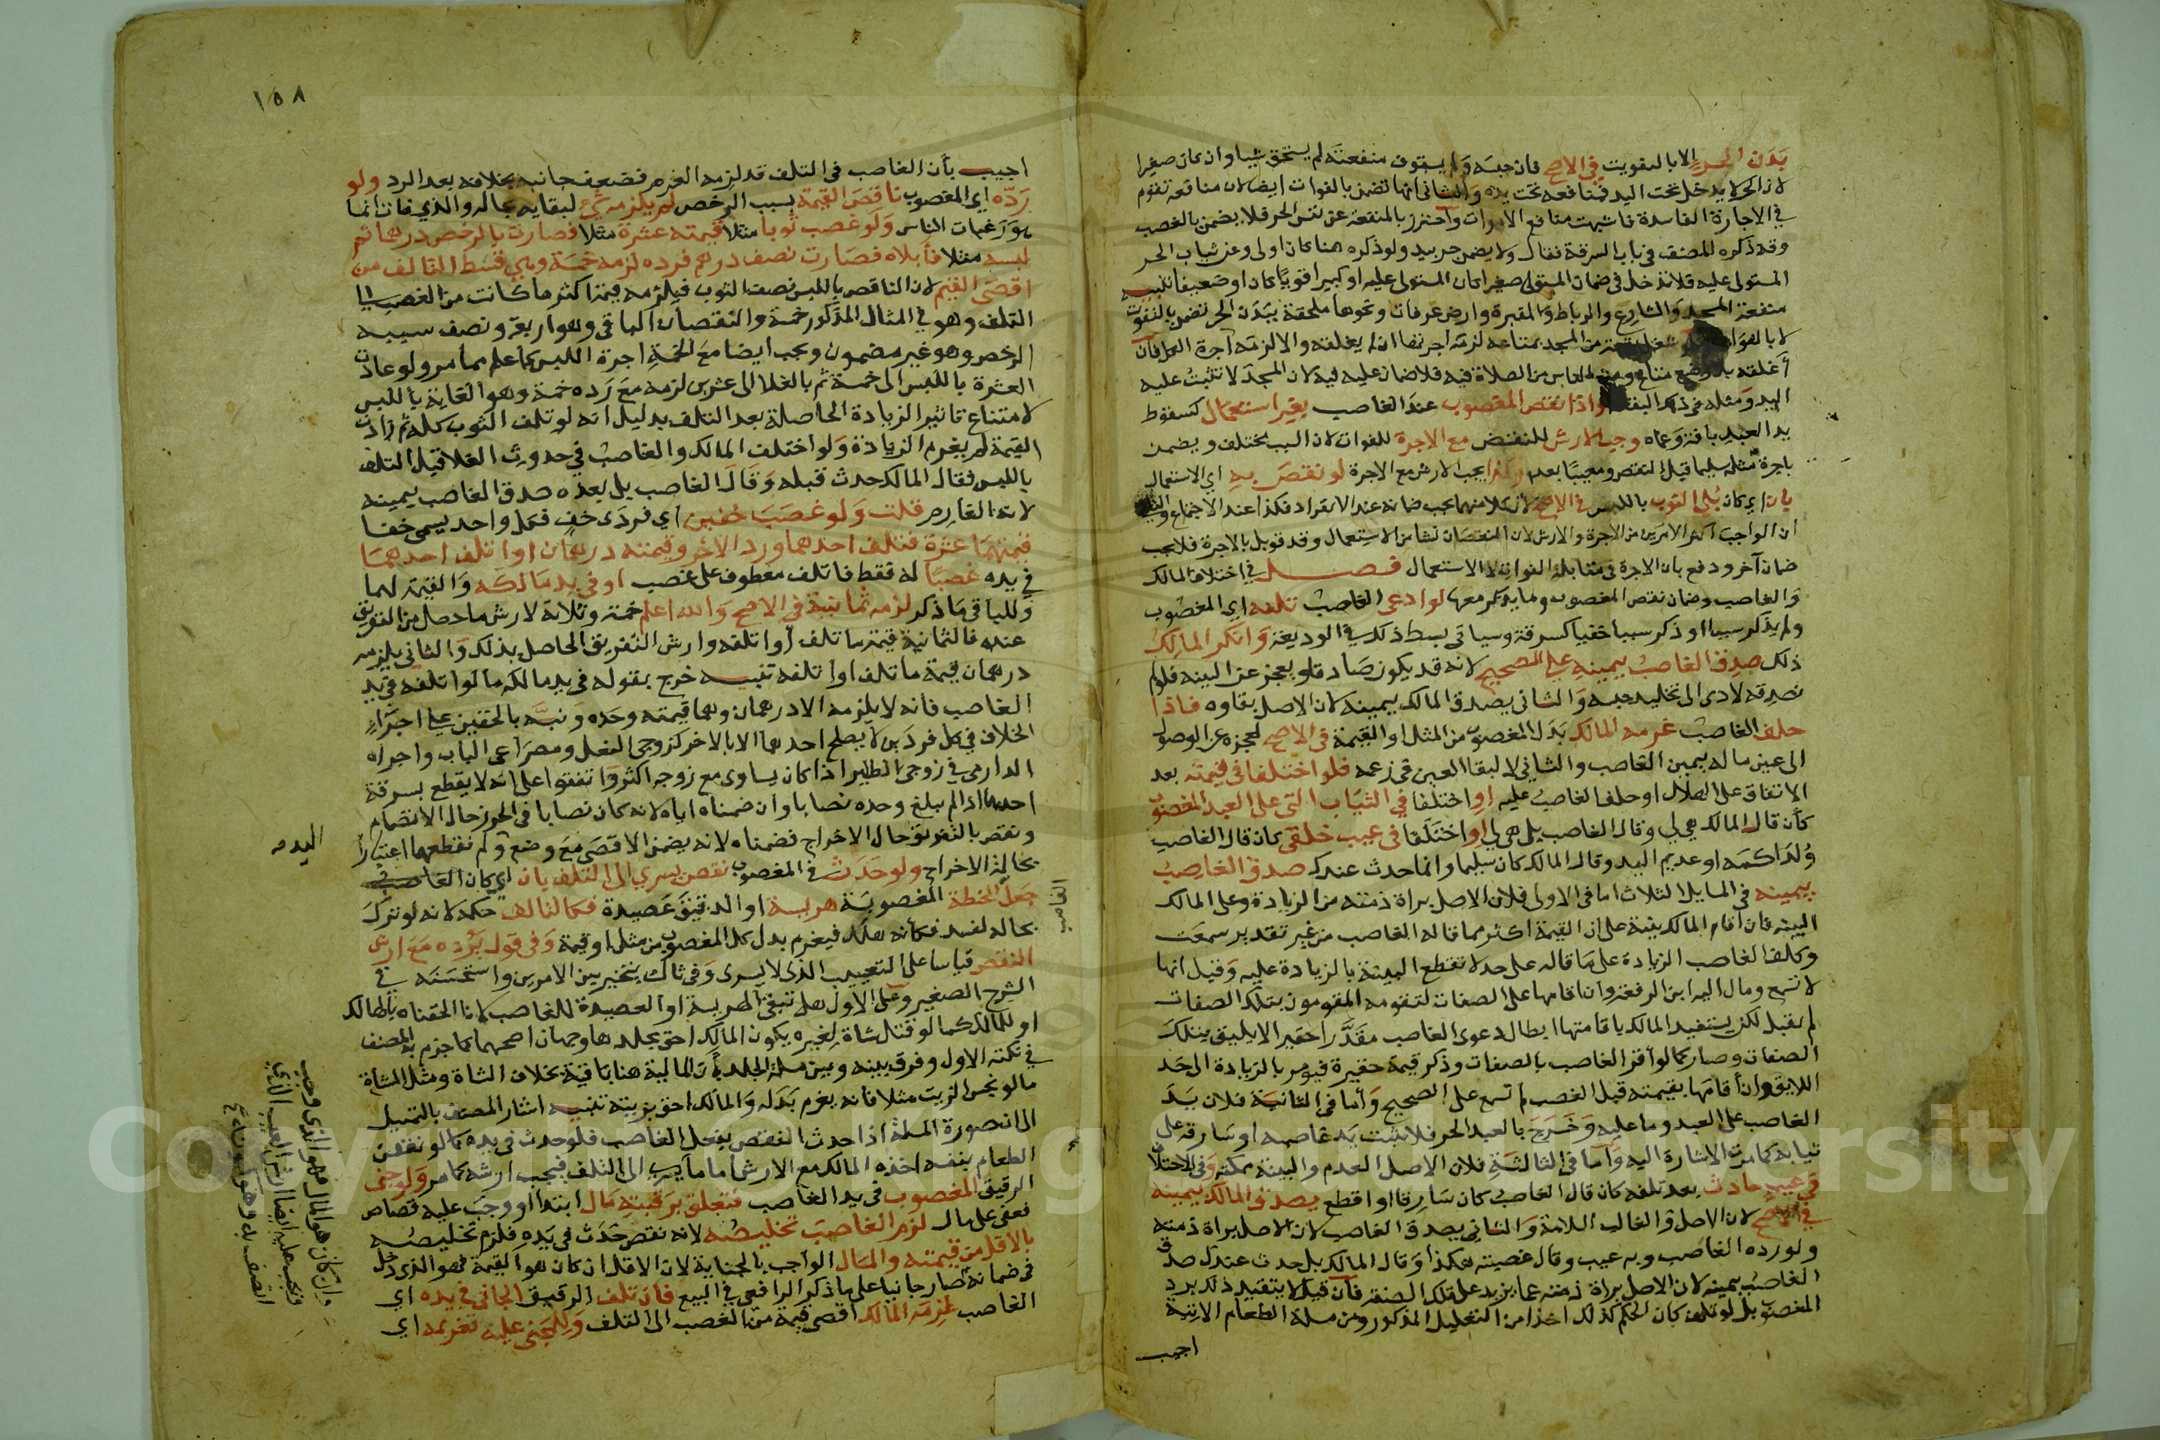 بدن الحر إلا بالتفويت في الاصح فان حبسه ولم يستوف منفعته لم يستحق شيا وان كان صغيرا
لان الحر لا يدخل تحت اليد فمنافعه تحت يده والثاني انها تضمن بالفوات ايضا لان منافعه تقوم
في الاجارة الفاسدة فاشبهت منافع الاموات واحترز بالمنفعة عن نفس الحر فلا يضمن بالغصب
وقد ذكره المصنف في باب السرقة فقال ولا يضمن حر بيد ولو ذكره هنا كان اولى وعن ثياب الحر
المستولى عليه فلا تدخل في ضمان المستولي صغيرا كان المستولى عليه او كبيرا قويا كان او ضعيفا تنبيه
منفعة المسجد والشارع والرباط والمقبرة وارض عرفات ونحوها ملحقة ببدن الحر تضمن بالتفويت
لا بالفوات من المسجد بمتاعه لزمته اجرتها ان لم يغلقه والا لزمته اجرة الكل فان
أغلقه بلا وضع متاع ومنع الناس من الصلاة فيه فلا ضمان عليه فيه لان المسجد لا تثبت عليه
اليد ومثله في ذلك البقية واذا نقص المغصوب عند الغاصب بغير استعمال كسقوط
يد العبد بآفة وعماه وجب الارش للنقص مع الاجرة للفوات لان السبب مختلف ويضمن
باجرة مثله سليما قبل النقص ومعيبا بعده وكذا يجب الارش مع الاجرة لو نقص به اي الاستعمال
بان اي كأن بلي الثوب باللبس في الاصح لان كلا منهما يجب ضمانه عند الانفراد فكذا عند الاجتماع والثاني
ان الواجب اكثر الامرين من الاجرة والارش لان النقصان نشا من الاستعمال وقد قوبل بالاجرة فلا يجب
ضمان آخر ودفع بان الاجرة في مقابلة الفوات لا الاستعمال فصل في اختلاف المالك
والغاصب وضمان نقص المغصوب وما يذكر معها لو ادعى الغاصب تلفه اي المغصوب
ولم يذكر سببا او ذكر سببا خفيا كسرقة وسياتي بسط ذلك في الوديعة وانكر المالك
ذلك صدق الغاصب بيمينه على الصحيح لانه قد يكون صادقا ويعجز عن البينه فلو لم
نصدقه لادى الى تخليد حبسه والثاني يصدق المالك بيمينه لان الاصل بقاوه فاذا
حلف الغاصب غرمه المالك بدل المغصوب من المثل او القيمة في الاصح لعجزه عن الوصول
الى عين ماله بيمين الغاصب والثاني لا لبقا العين في زعمه فلو اختلفا في قيمته بعد
الاتفاق على الهلاك او حلف الغاصب عليه او اختلفا في الثياب التي على العبد المغصوب
كأن قال المالك هي لي وقال الغاصب بل هي لي او اختلفا في عيب خلقي كان قال الغاصب
ولد اكمه او عديم اليد وقال المالك كان سليما وانما حدث عندك صدق الغاصب
بيمينه في المسايل الثلاث اما في الاولى فلان الاصل براة ذمته من الزيادة وعلى المالك
البينه فان اقام المالك بينة على ان القيمة اكثر مما قاله الغاصب من غير تقدير سمعت
وكلف الغاصب الزيادة على ما قاله على حد لا تقطع البينة بالزيادة عليه وقيل انها
لا تسمع ومال اليه ابن الرفعة وان اقامها على الصفات لتقومه المقومون بتلك الصفات
لم يقبل لكن يستفيد المالك باقامتها ابطال دعوى الغاصب مقدرا حقيرا لا يليق بتلك
الصفات وصار كما لو أقر الغاصب بالصفات وذكر قيمة حقيرة فيومر بالزيادة الى حد
اللايق وان أقامها بقيمته قبل الغصب لم تسمع على الصحيح وأما في الثانية فلان يد
الغاصب على العبد وما عليه وخرج بالعبد الحر فلا تثبت يد غاصبه او سارقه على
ثيابه كما مرت الاشارة اليه واما في الثالثة فلان الاصل العدم والبينة ممكنة وفي الاختلاف
في عيب حادث بعد تلفه كان قال الغاصب كان سارقا او اقطع يصدق المالك بيمينه
في الاصح لان الاصل والغالب السلامة والثاني يصدق الغاصب لان الاصل براة ذمته
ولو رده الغاصب وبه عيب وقال غصبته هكذا وقال المالك بل حدث عندك صدق
الغاصب بيمينه لان الاصل براة ذمته عما يزيد على تلك الصفة فان قيل لا يتقيد ذلك برد
المغصوب بل لو تلف كان الحكم كذلك اخذا من التعليل المذكور ومن مسلة الطعام الاتية
اجيب
١٥٨
اجيب بأن الغاصب في التلف قد لزمه الغرم فضعف جانبه بخلافه بعد الرد ولو
رده اي المغصوب ناقص القيمة بسبب الرخص لم يلزمه شي لبقايه بحاله والذي فات انما
هو رغبات الناس ولو غصب ثوبا مثلا قيمته عشرة مثلا فصارت بالرخص درهما ثم
لبسه مثلا فأبلاه فصارت نصف درهم فرده لزمه خمسة وهي قسط التالف من
اقصى القيم لان الناقص باللبس نصف الثوب فيلزمه قيمته اكثر ما كانت من الغصب الى
التلف وهو في المثال المذكور خمسة والنقصان الباقي وهو اربعة ونصف سببه
الرخص وهو غير مضمون ويجب ايضا مع الخمسة اجرة اللبس كما علم مما مر ولو عادت
العشرة باللبس الى خمسة ثم بالغلا الى عشرين لزمه مع رده خمسة وهو الفائتة باللبس
لامتناع تاثير الزيادة الحاصلة بعد التلف بدليل انه لو تلف الثوب كله ثم زادت
القيمة لم يغرم الزيادة ولو اختلف المالك والغاصب في حدوث الغلا قبل التلف
باللبس فقال المالك حدث قبله وقال الغاصب بل بعده صدق الغاصب بيمينه
لانه الغارم قلت ولو غصب خفين اي فردي خف فكل واحد يسمى خفا
قيمتهما عشرة فتلف احدهما ورد الآخر وقيمته درهمان او اتلف احدهما
في يده غصبا له فقط فاتلف معطوف على غصب او في يد مالكه والقيمة لهما
وللباقي ما ذكر لزمه ثمانية في الاصح والله اعلم خمسة وثلاثة لارش ما حصل من التفريق
عنده فالثمانية قيمة ما تلف او اتلفه وارش التفريق الحاصل بذلك والثاني يلزمه
درهمان قيمة ما تلف او اتلفه تنبيه خرج بقوله في يد مالكه ما لو اتلفه في يد
الغاصب فانه لا يلزمه الا درهمان وهما قيمته وحده ونبه بالخفين على اجراء
الخلاف في كل فردين لا يصلح احدهما الا بالاخر كزوجي النعل ومصراعي الباب واجراه
الدارمي في زوجي الطاير اذا كان يساوي مع زوجه اكثر واتفقوا على انه لا يقطع بسرقة
احدهما اذا لم يبلغ وحده نصابا وان ضمناه اياه لانه كان نصابا في الحرز حال الانضمام
ونقص بالتفريق حال الاخراج فضمناه لانه يضمن الاقصى مع وضع ولم نقطعهما اعتبارا
بحالة الاخراج ولو حدث في المغصوب نقص يسري الى التلف بان اي كان الغاصب
جعل الحنطة المغصوبة هريسة او الدقيق عصيدة فكالتالف حكمه لانه لو ترك
بحاله لفسد فكأنه هلك فيغرم بدل كل المغصوب من مثل او قيمة وفي قول يرده مع ارش
النقص قياسا على التعييب الذي لا يسرى وفي ثالث يتخير بين الامرين واستحسنه في
الشرح الصغير وعلى الاول هل تبقى الهريسة او العصيدة للغاصب لانا الحقناه بالهالك
او للمالك كما لو قتل شاة لغيره يكون المالك احق بجلدها وجهان اصحهما كما جزم به المصنف
في نكته الاول وفرق بينه وبين مسلة الجلد بأن المالية هنا باقية بخلاف الشاة ومثل الشاة
ما لو نجس الزيت مثلا فانه يغرم بدله والمالك احق بزيته تنبيه اشار المصنف بالتمثيل
الى ان صورة المسلة اذا حدث النقص بفعل الغاصب فلو حدث في يده كما لو تعفن
الطعام بنفسه اخذه المالك مع الارش أما ما لا يسري الى التلف فيجب ارشه كما مر ولو جنى
الرقيق المغصوب في يد الغاصب فتعلق برقبته مال ابتداء او وجب عليه قصاص
فعفي على مال لزم الغاصب تخليصه لانه نقص حدث في يده فلزم تخليصه
بالاقل من قيمته والمال الواجب بالجناية لان الاقل ان كان هو القيمة فهو الذي دخل
في ضمانه صار جانيا على ما ذكر الرافعي في البيع فان تلف الرقيق الجاني في يده اي
الغاصب غرمه المالك اقصى قيمة من الغصب الى التلف وللمجني عليه تغريمه اي
اليد مـ
الغاصب
وان كان هو المال فهو الذي وجب
ويجب عليه ايضا ارش العيب الذي